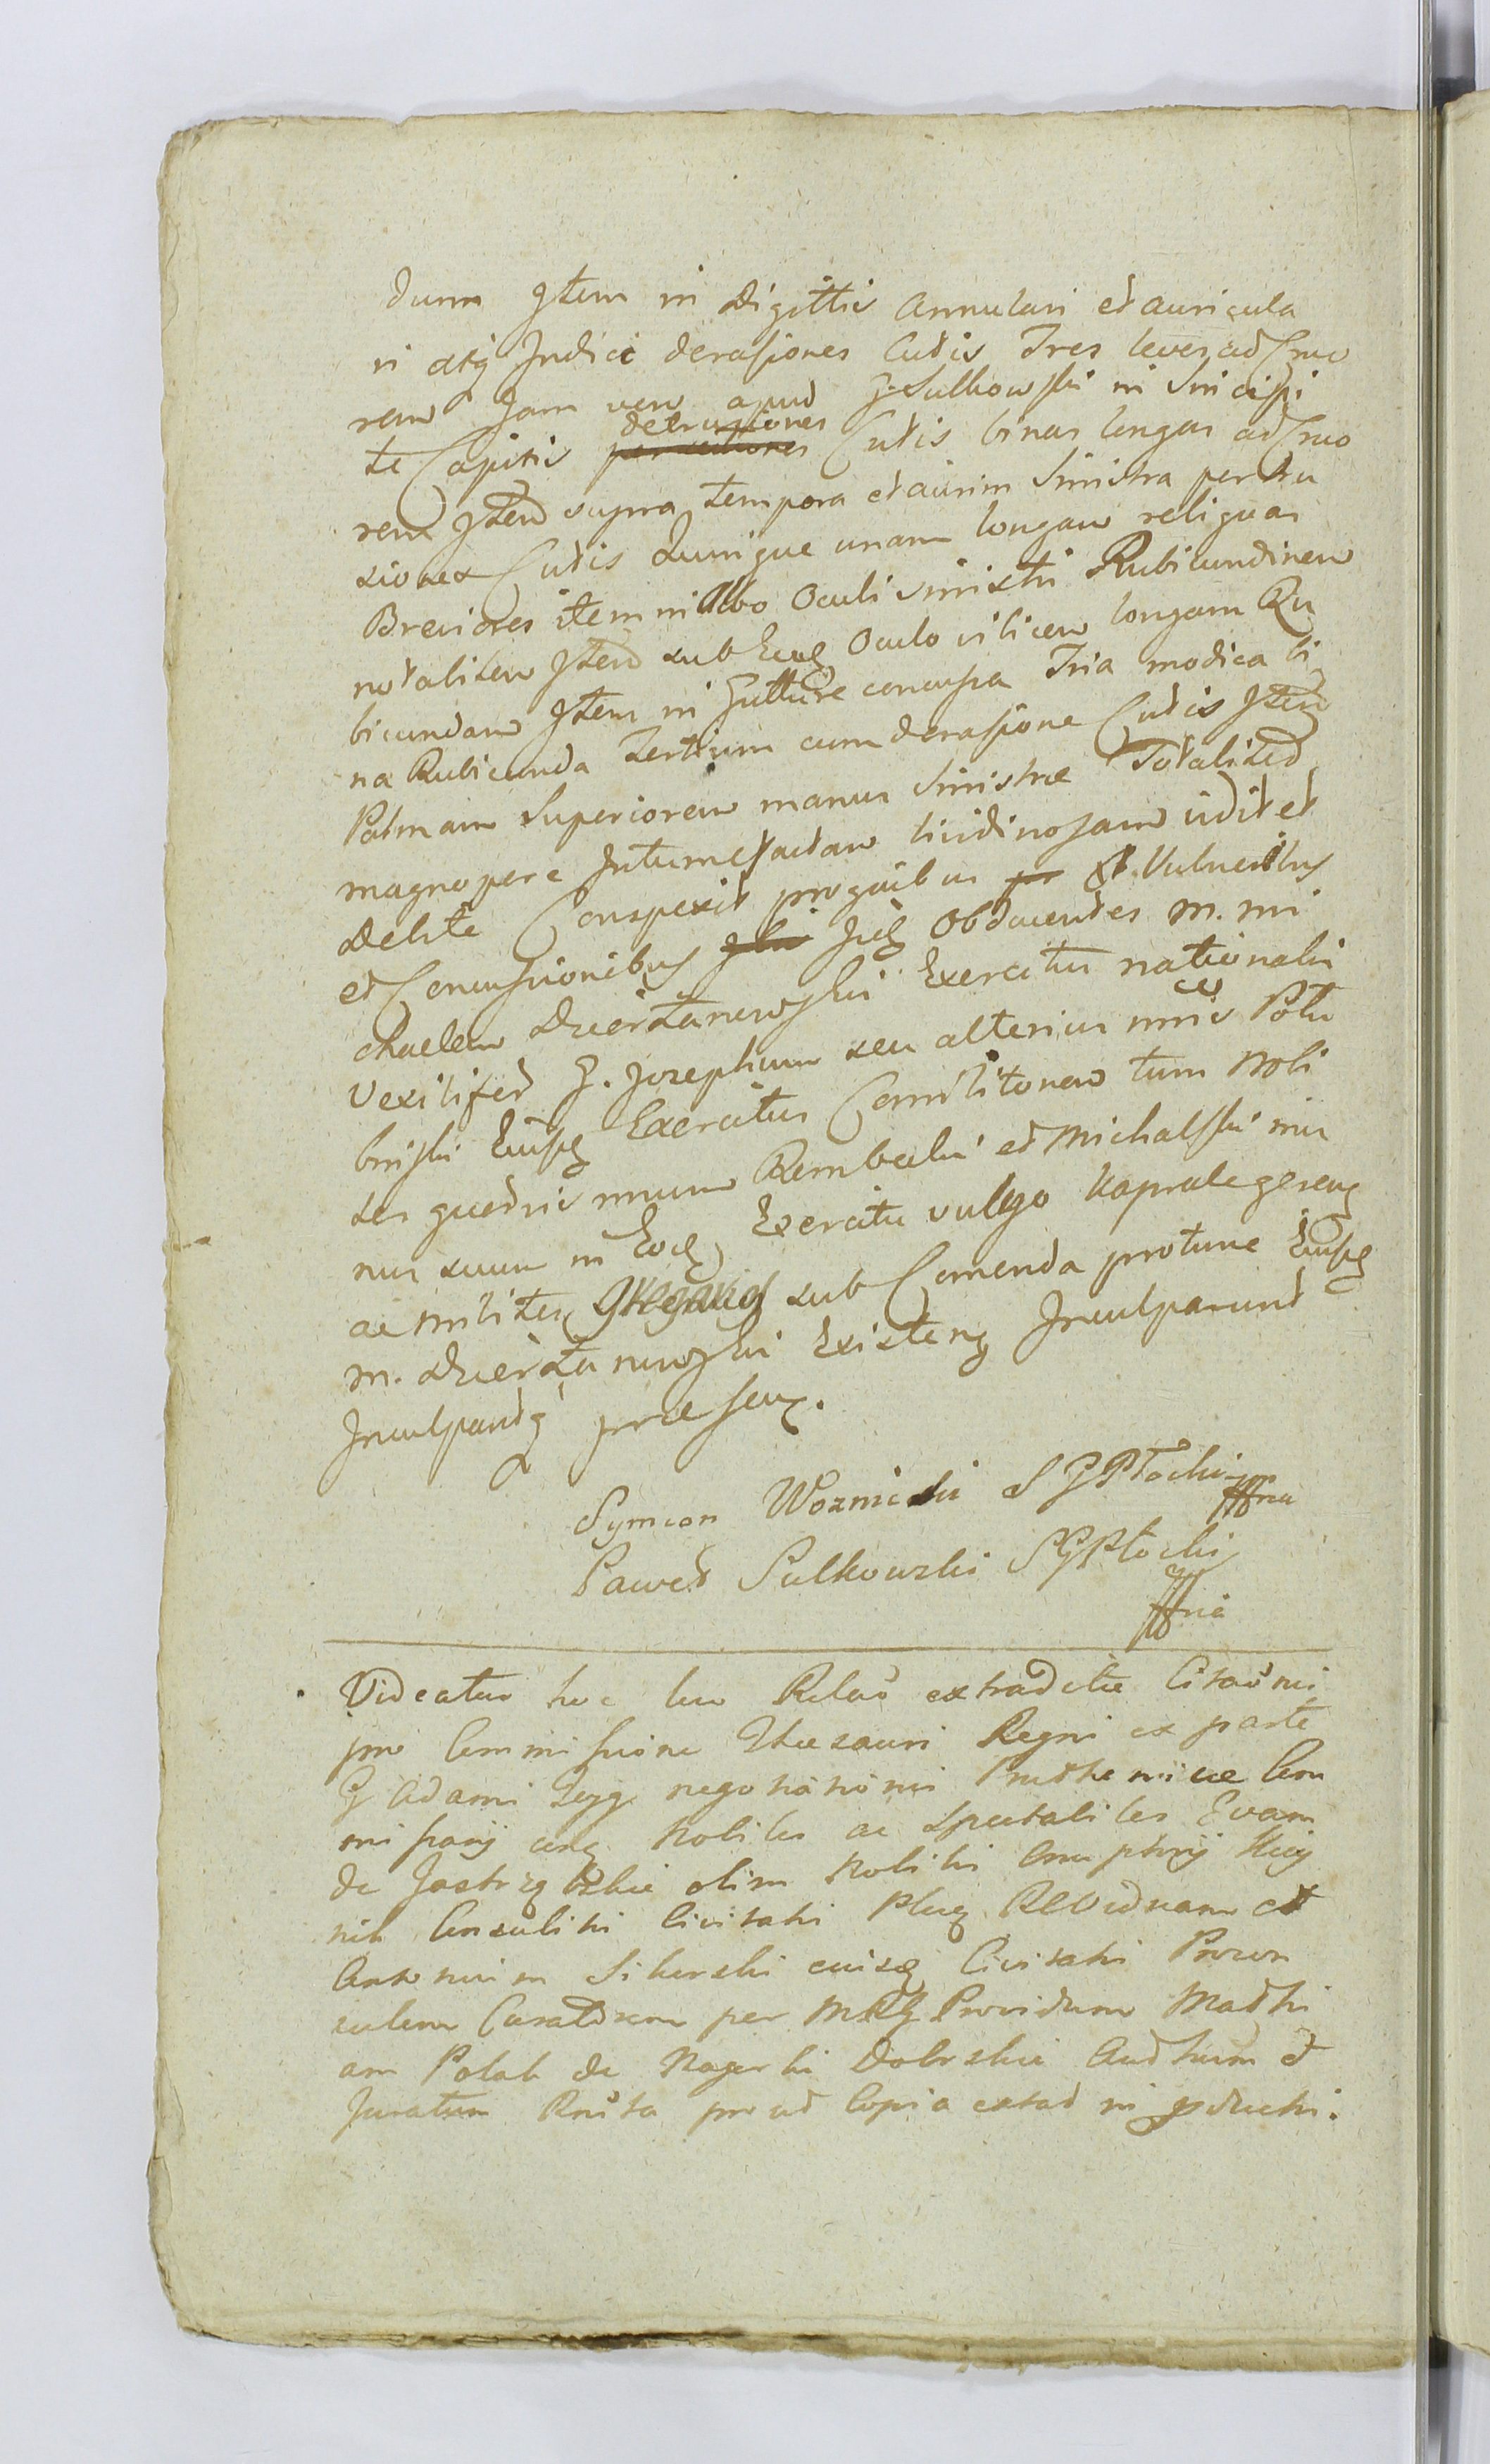 dum Item in Digittis Annulari et auricula
ri atq Indici derasiones Cutis Tres leves ad Cruo
rem Jam vero apud G. Sulkowski in Sincipi
te Capitis detrusiones Cutis binas longas ad Cruo
rem Item supra tempora et aurim Sinistra pertru
siones Cutis Quinque unam longam reliquas
Breviores item in Albo Oculi sinistri Rubicundinem
notabilem Item sub Eod Oculo vibicem longam Ru
bicundam Item in Gutture concussa Tria modica bi
na Rubicunda tertium cum derasione Cutis Item
Palmam Superiorem manus Sinistrae Totaliter
magnopere Intumefactam lividinosam vidit et
debite Conspexit pro quibus Vulneribus
et Concussionibus Iid Obducentes M. Mi
chaelem Dzierżanowski Exercitus nationalis
Vexilifer G. Josephum seu alterius nnis Potu
linski Eiusd Exercitus Comilitonem tum Nobi
les quedris nnum Rembecki et Michalski mu
nus suum in Eod Exercitu vulgo Kaprale gereng
ac milites Gregarios sub Comenda protunc Eiusd
M. Dzierżanowski Existeng Inculparunt
Inculpantq praesens.
Symeon Woznicki S G Płocki
Paweł Sulkowski S G Płocki
Videatur hoc loco Relao extraditae Citaonis
pro Commissione Thesauri Regni ex parte
G Adami Zeyg negotiationis Commi
ssarij cong Nobiles ac Spectabiles Evam
de Jastrzębskie olim Nobilis Onuphrij
nik Consulis Civitatis Plocq Relviduam et
Antonium Sikorski eiusq Civitatis Procon
sulem Curatorem per MRG Providum Mathi
am Polak de Nagorki Dobrskie Authum et
Juratum Rnita prout Copia extat in producti.